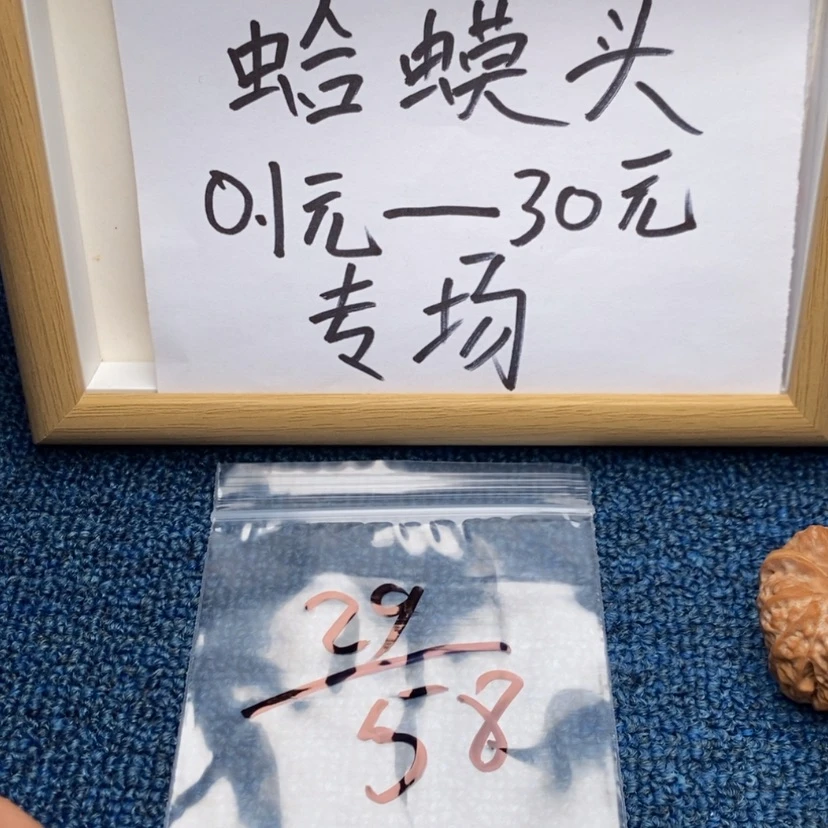 蛤蟆头
0.1元—30元
专场
29
58